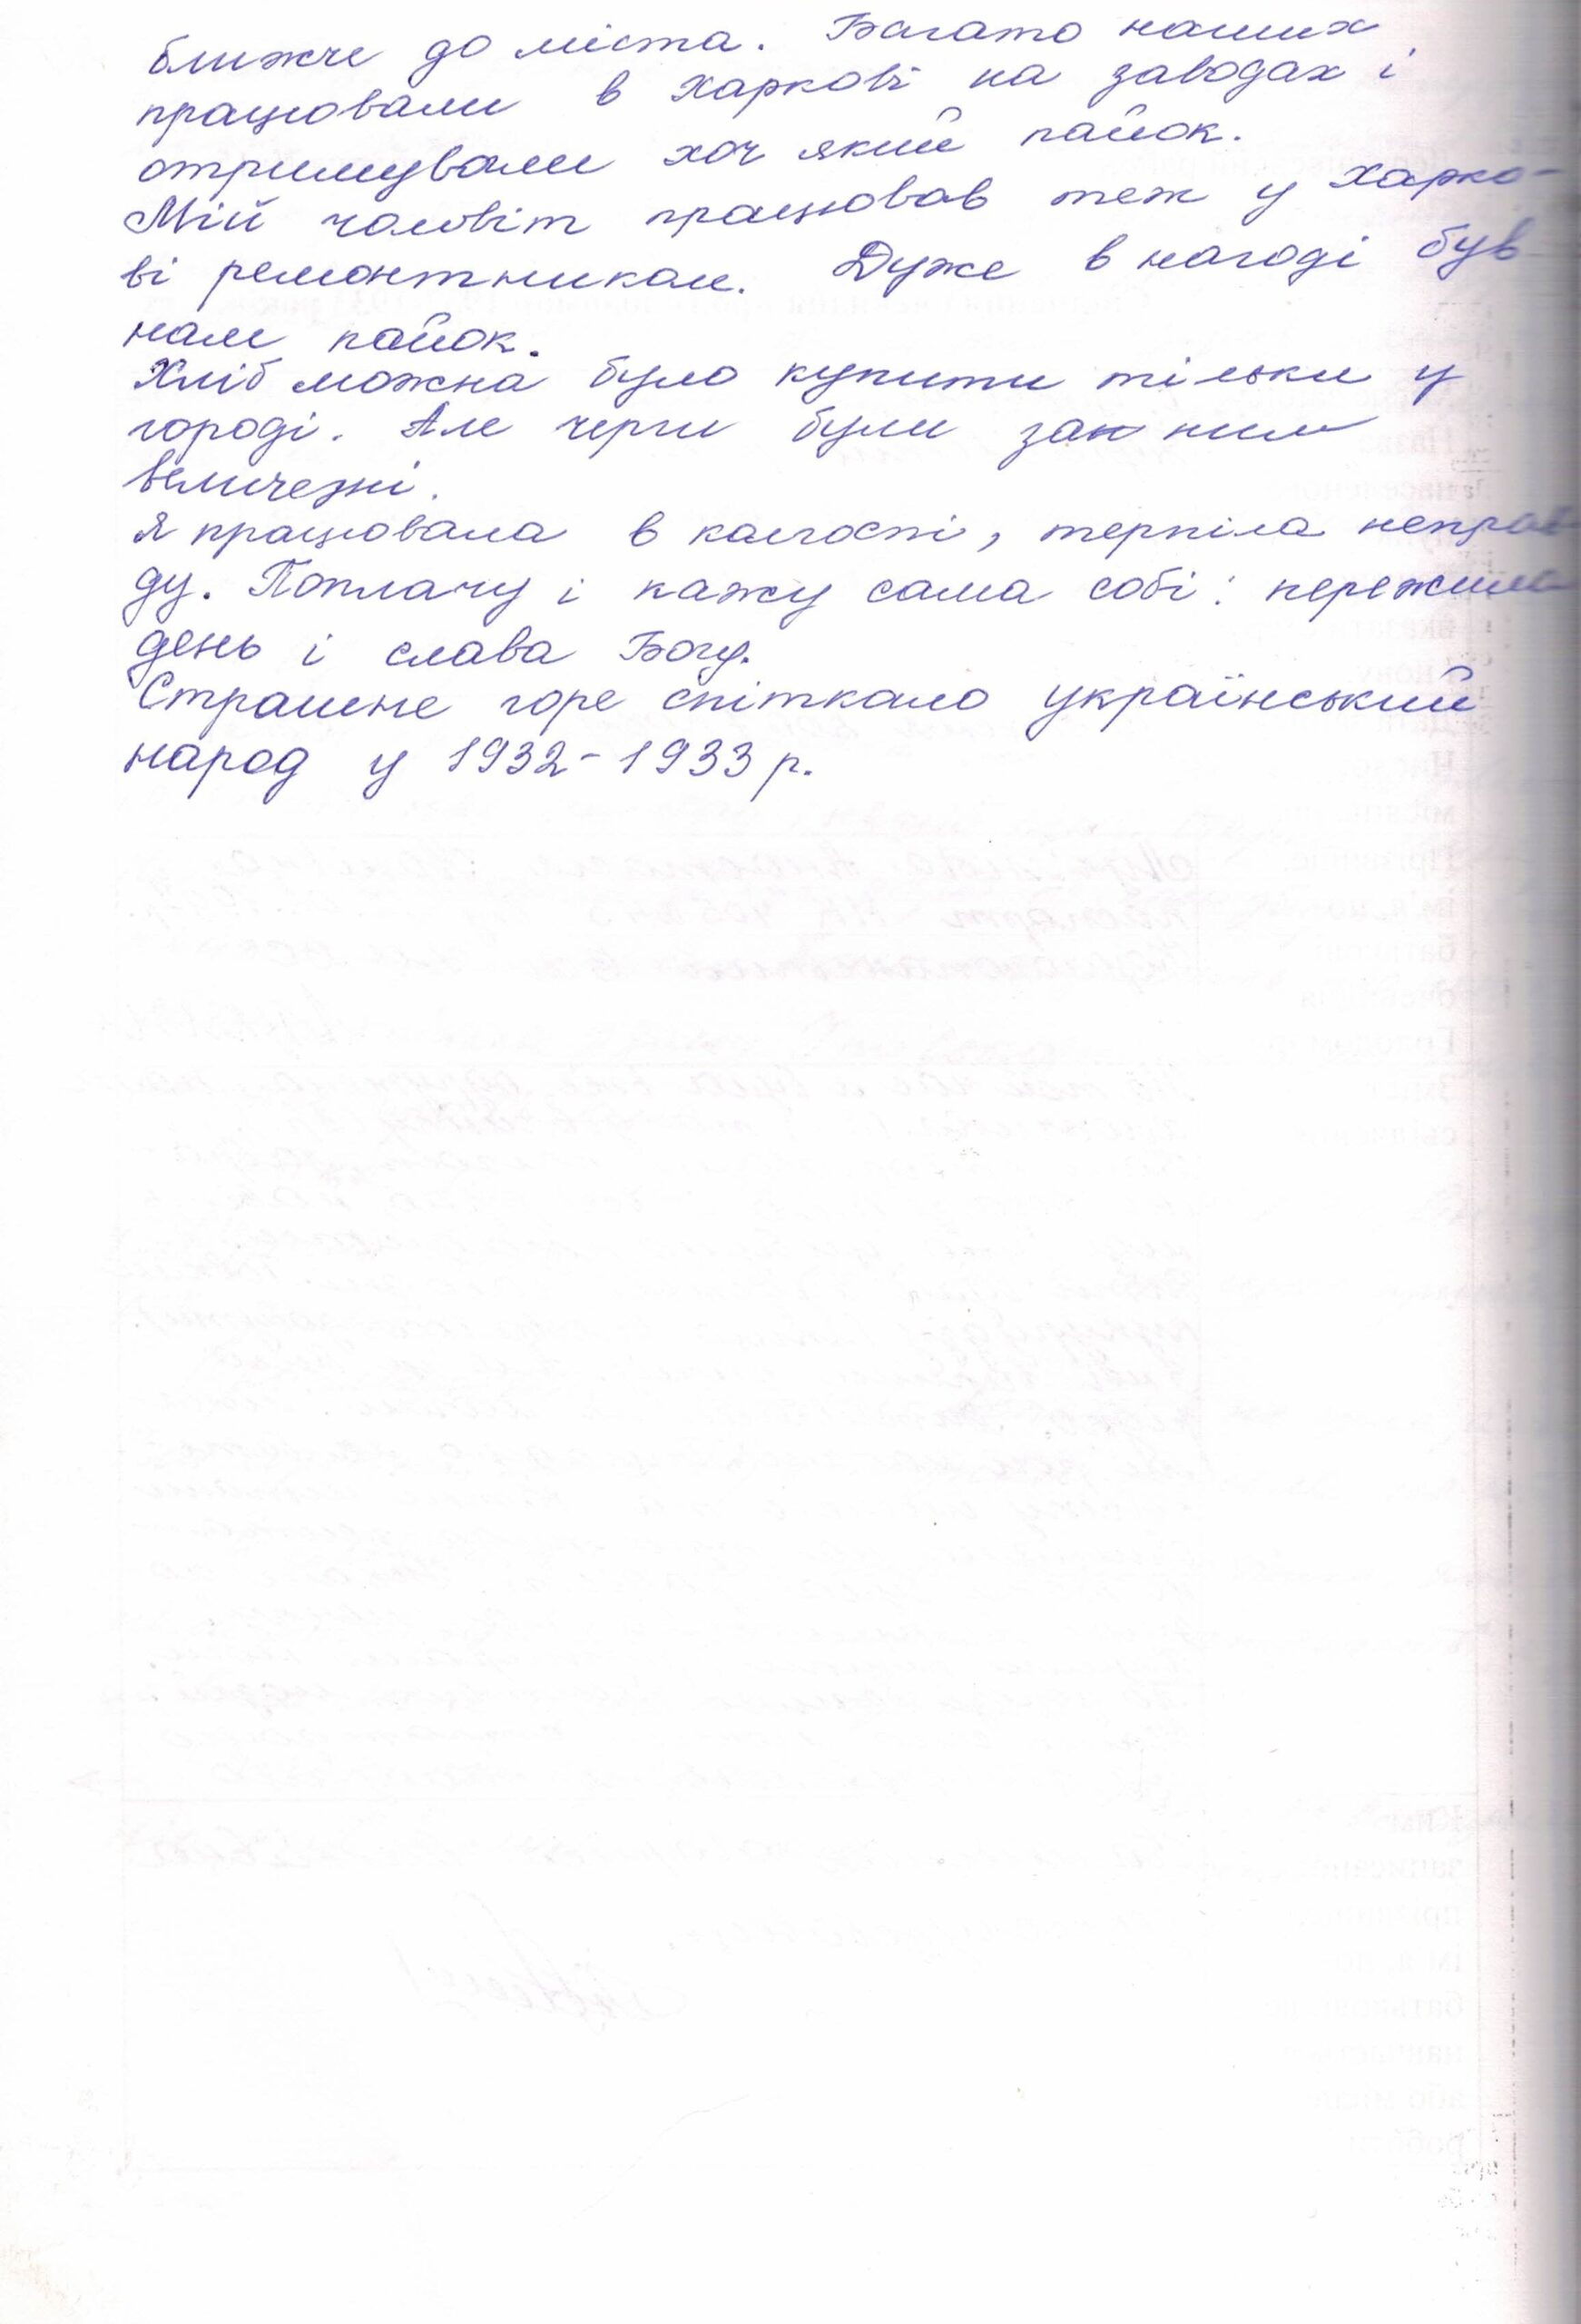 ближче до міста. Багато наших
працювали в Харкові на заводах і
отримували хоч який пайок.
Мій чоловік працював теж у Харко-
ві ремонтником. Дуже в нагоді був
нам пайок.
Хліб можна було купити тільки у
городі. Але черги були за ним
величезні.
Я працювала в колгоспі, терпіла неправ-
ду. Поплачу і кажу сама собі: пережила
день і слава Богу.
Страшне горе спіткало український
народ у 1932-1933 р.